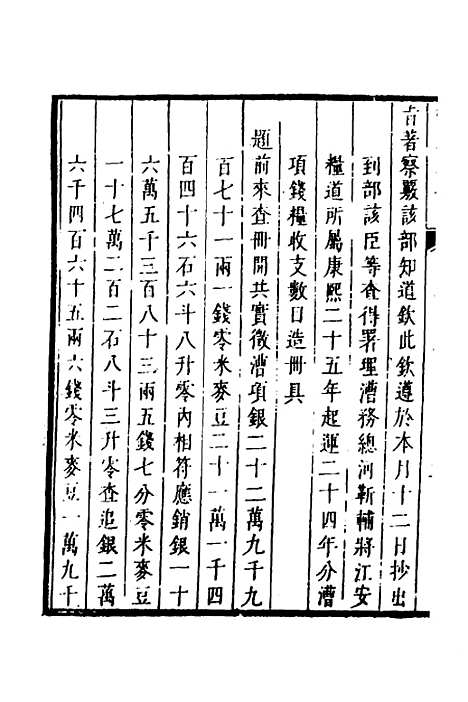 旨著察覈該部知道欽此欽遵於本月十二日抄出
到部該臣等查得署理漕務總河靳輔將江安
糧道所屬康熙二十五年起運二十四年分漕
項錢糧收支數目造冊具
題前來查冊開共實徵漕項銀二十二萬九千九
百七十一兩一錢零米麥豆二十一萬一千四
百四十六石六斗八升零內相符應銷銀一十
六萬五千三百八十三兩五錢七分零米麥豆
一十七萬二百二石八斗三升零查追銀二萬
六千四百六十五兩六錢零米麥豆一萬九千